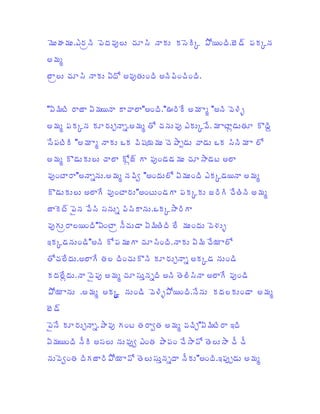 మొహము.ఎర్రని పెదవులు చూసి నాకు కసెక్కి పోయింది.బెడ్ పక్కన
అమ్మ
బ్రాలు చూసి నాకు ఏదో అవుతుంది అనిపించింది.
"ఏమిటి రాజా ఏమయినా కావాలా"అంది."ఊరికే అమ్మా "అని వెళ్ళి
అమ్మ పక్కన కూర్చున్నా.అమ్మ తో చనువు ఎక్కువే. మాట్లాడుతూ కొద్ది
సేపటికి "అమ్మా నాకు ఒక విషయము చెప్పాడు వాడు ఒక సినిమా లో
అమ్మ కొడుకులు చాలా క్లోజ్ గా వుండడము చూసాడట అలా
వుంటారా"అన్నాను.అమ్మ నవ్వి "అందులో ఏముంది ఎక్కడయినా అమ్మ
కొడుకులు అలాగే వుంటారు"అంటుండగా పక్కకు జరిగి చేతిని అమ్మ
జాకెట్ పైన వేసి సన్ను పిసికాను.ఒక్కసారిగా
వులిక్కిపడింది"ఏంట్రా నీచుడా ఏమిటిది లే ముందు వెళ్ళు
ఇక్కడనుండి"అని కోపముగా చూసింది.నాకు ఏమి చేయాలో
తోచలేదు.అలాగే తల దించుకొని కూర్చున్నా అక్కడ నుండి
కదల్లేదు.నా వైపు అమ్మ చూస్తున్నది అని తెలిసినా అలాగే వుండి
పోయాను .అమ్మ అక్కడ నుండి వెళ్ళిపోయింది.నేను కదలకుండా అమ్మ
బెడ్
పైనే కూర్చున్నా.పావు గంట తర్వాత అమ్మ వచ్చి"ఏమిట్రా ఇది
ఏమయింది నీకి అసలు నువ్వు ఎంత పాపం చేసావో తెలుసా ఛీ ఛీ
నువ్వెంత దిగజారిపోయావో తెలుస్తున్నదా నీకు"అంది.ఇప్పుడు అమ్మ